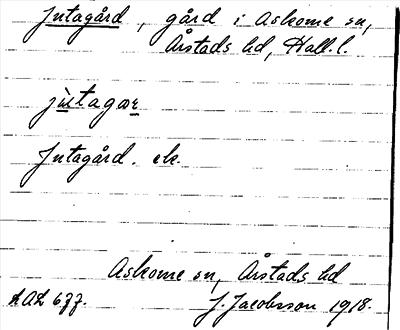 Jutagård, gård i Askome sn,
Årstads hd, Hall. l.
jùtagaʀ
Jutagård. ek.
Askome sn, Årstads hd
LAL 677. J. Jacobsson 1918.